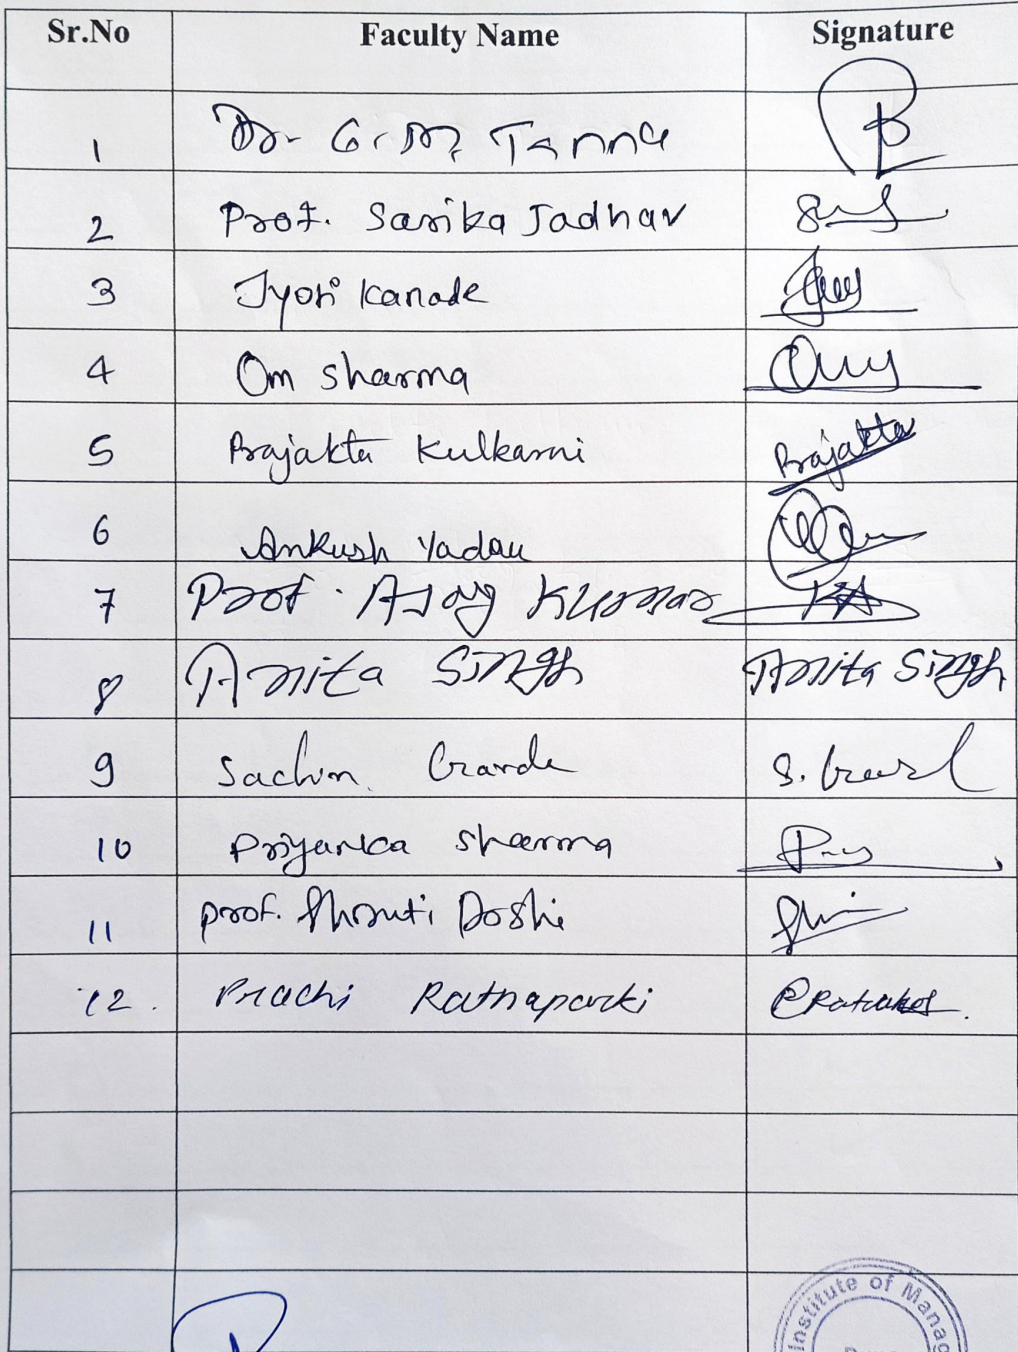 Sr.No Faculty Name Signature
1 Dr. G.M. Tanna
2 Prof. Sarika Jadhav
3 Jyoti Kanade
4 Om Sharma
5 Prajakta Kulkarni Prajakta
6 Ankush Yadav
7 Prof. Ajay Kumar KA
8 Anita Singh Anita Singh
9 Sachin
10 Priyanka Sharma
11 Prof. Shruti Doshi
12. Prachi Ratnaparki
Institute of Manag